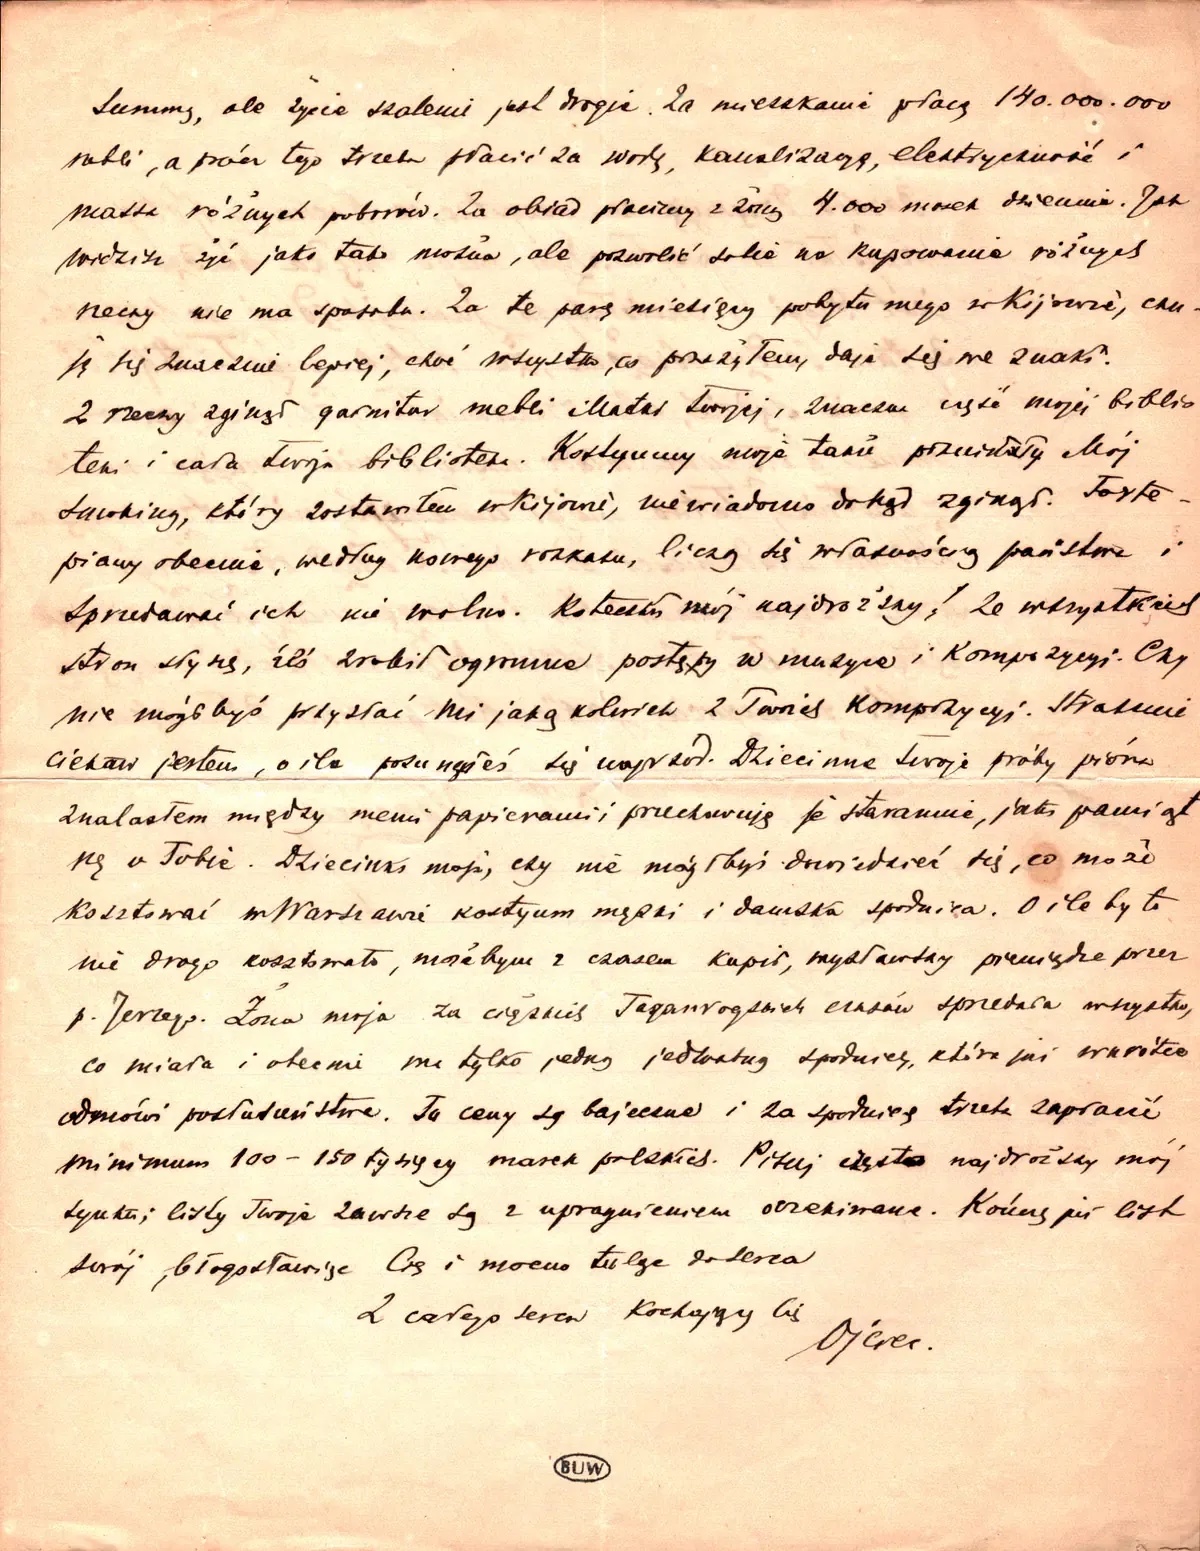 summę, ale życie szalenie jest drogie. Za mieszkanie płacę 140.000.000
rubli, a prócz tego trzeba płacić za wodę, kanalizacyę, elektryczność i
massę różnych poborów. Za obiad płacimy z żoną 4.000 marek dziennie. Jak
widzisz żyć jako tako można, ale pozwolić sobie na kupowanie różnych
rzeczy nie ma sposobu. Za te parę miesięcy pobytu mego w Kijowie, czu-
ję się znacznie lepiej, choć wszystko, co przeżyłem, daje się we znaki.
Z rzeczy zginął garnitur mebli Matki Twojej, znaczna część mojej biblio
teki i cała Twoja biblioteka. Kostyumy moje także Mój
smoking, który zostawiłem w Kijowie, niewiadomo dokąd zginął. Forte-
piany obecnie, według nowego rozkazu, liczą się własnością państwa i
sprzedawać ich nie wolno. Koteczku mój najdroższy! Ze wszystkich
stron słyszę, iżeś zrobił ogromne postępy w muzyce i kompozycyi. Czy
nie mógłbyś przysłać mi jaką kolwiek z Twoich kompozycyj. Strasznie
ciekaw jestem, o ile posunąłeś się naprzód. Dziecinne Twoje próby pióra
znalazłem między memi papierami i przechowuję je starannie, jako pamiąt
kę o Tobie. Dziecinko moja, czy nie mógłbyś dowiedzieć się, co może
kosztować w Warszawie kostyum męzki i damska spódnica. O ile by to
nie drogo kosztowało, możebym z czasem kupił, wysławszy pieniądze przez
p. Jerzego. Żona moja za ciężkich Taganrogskich czasów sprzedała wszystko,
co miała i obecnie ma tylko jedną jedwabną spódnicę, która już wkrótce
odmówi posłuszeństwa. Tu ceny są bajeczne i za spódnicę trzeba zapłacić
minimum 100 – 150 tysięcy marek polskich. Pisuj często najdroższy mój
synku; listy Twoje zawsze są z upragnieniem oczekiwane. Kończę już list
swój, błogosławię Cię i mocno tulę do serca
Z całego serca Kochający Cię
Ojciec.
BUW